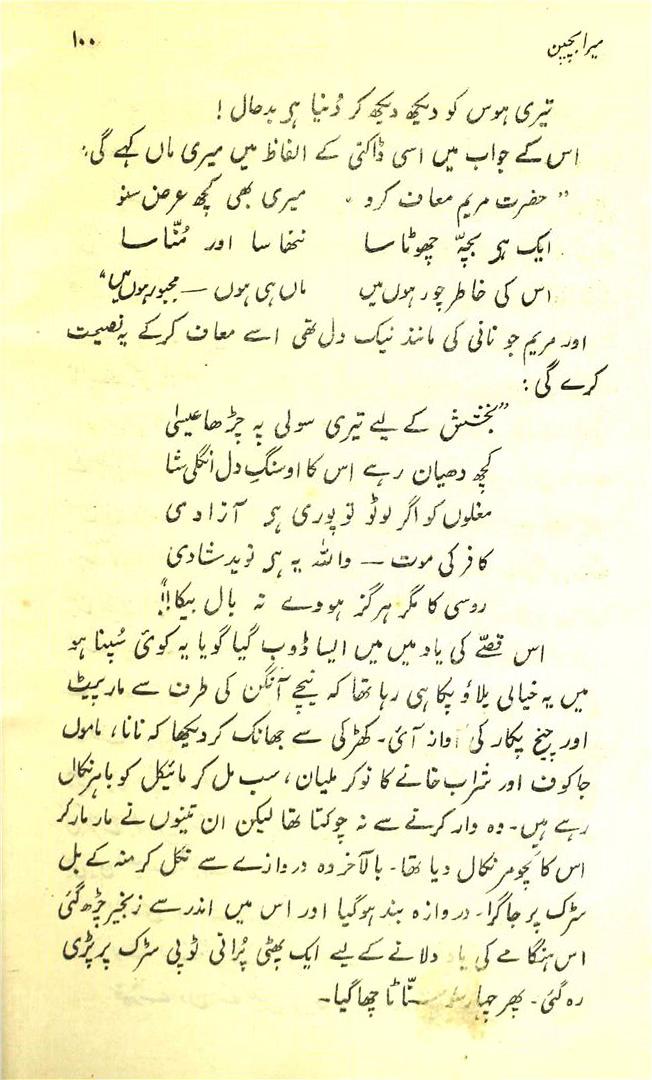 میرا بچپن ۱۰۰
تیری ہوس کو دیکھ دیکھ کر دُنیا ہی بدحال !
اس کے جواب میں اسی ڈاکنی کے الفاظ میں میری ماں کہے گی:
" حضرت مریم معاف کرو ۔ میری بھی کچھ عرض سنو
ایک ہی بچہّ چھوٹا سا ننھا سا اور مُنّا سا
اس کی خاطر چور ہوں میں ماں ہی ہوں — مجبور ہوں میں "
اور مریم جو نانی کی مانند نیک دل تھی اسے معاف کرکے یہ نصیحت
کرے گی :
" بخشش کے لیے تیری سولی پہ چڑھا عیسیٰ
کچھ دھیان رہے اس کا او سنگِ دل انگلی شا
مغلوں کو اگر لوٹو تو پوری ہی آزادی
کافر کی موت — واللہ یہ ہی نویدِ شادی
روسی کا مگر ہرگز ہووے نہ بال بیکا!!"
اس قصّے کی یاد میں میں ایسا ڈوب گیا گویا یہ کوئی سُپنا ہو
میں یہ خیالی پلاؤ پکا ہی رہا تھا کہ نیچے آنگن کی طرف سے مار پیٹ
اور چیخ پکار کی آواز آئی۔ کھڑکی سے جھانک کر دیکھا کہ نانا، ماموں
جاکوف اور شراب خانے کا نوکر ملیان، سب مل کر مائیکل کو باہر نکال
رہے ہیں۔ وہ وار کرنے سے نہ چوکتا تھا لیکن ان تینوں نے مار مار کر
اس کا کچومر نکال دیا تھا۔ بالآخر وہ دروازے سے نکل کر منہ کے بل
سڑک پر جا گرا۔ دروازہ بند ہوگیا اور اس میں اندر سے زنجیر چڑھ گئی
اس ہنگامے کی یاد دلانے کے لیے ایک پھٹی پُرانی ٹوپی سڑک پر پڑی
رہ گئی۔ پھر چہار سنّاٹا چھا گیا۔